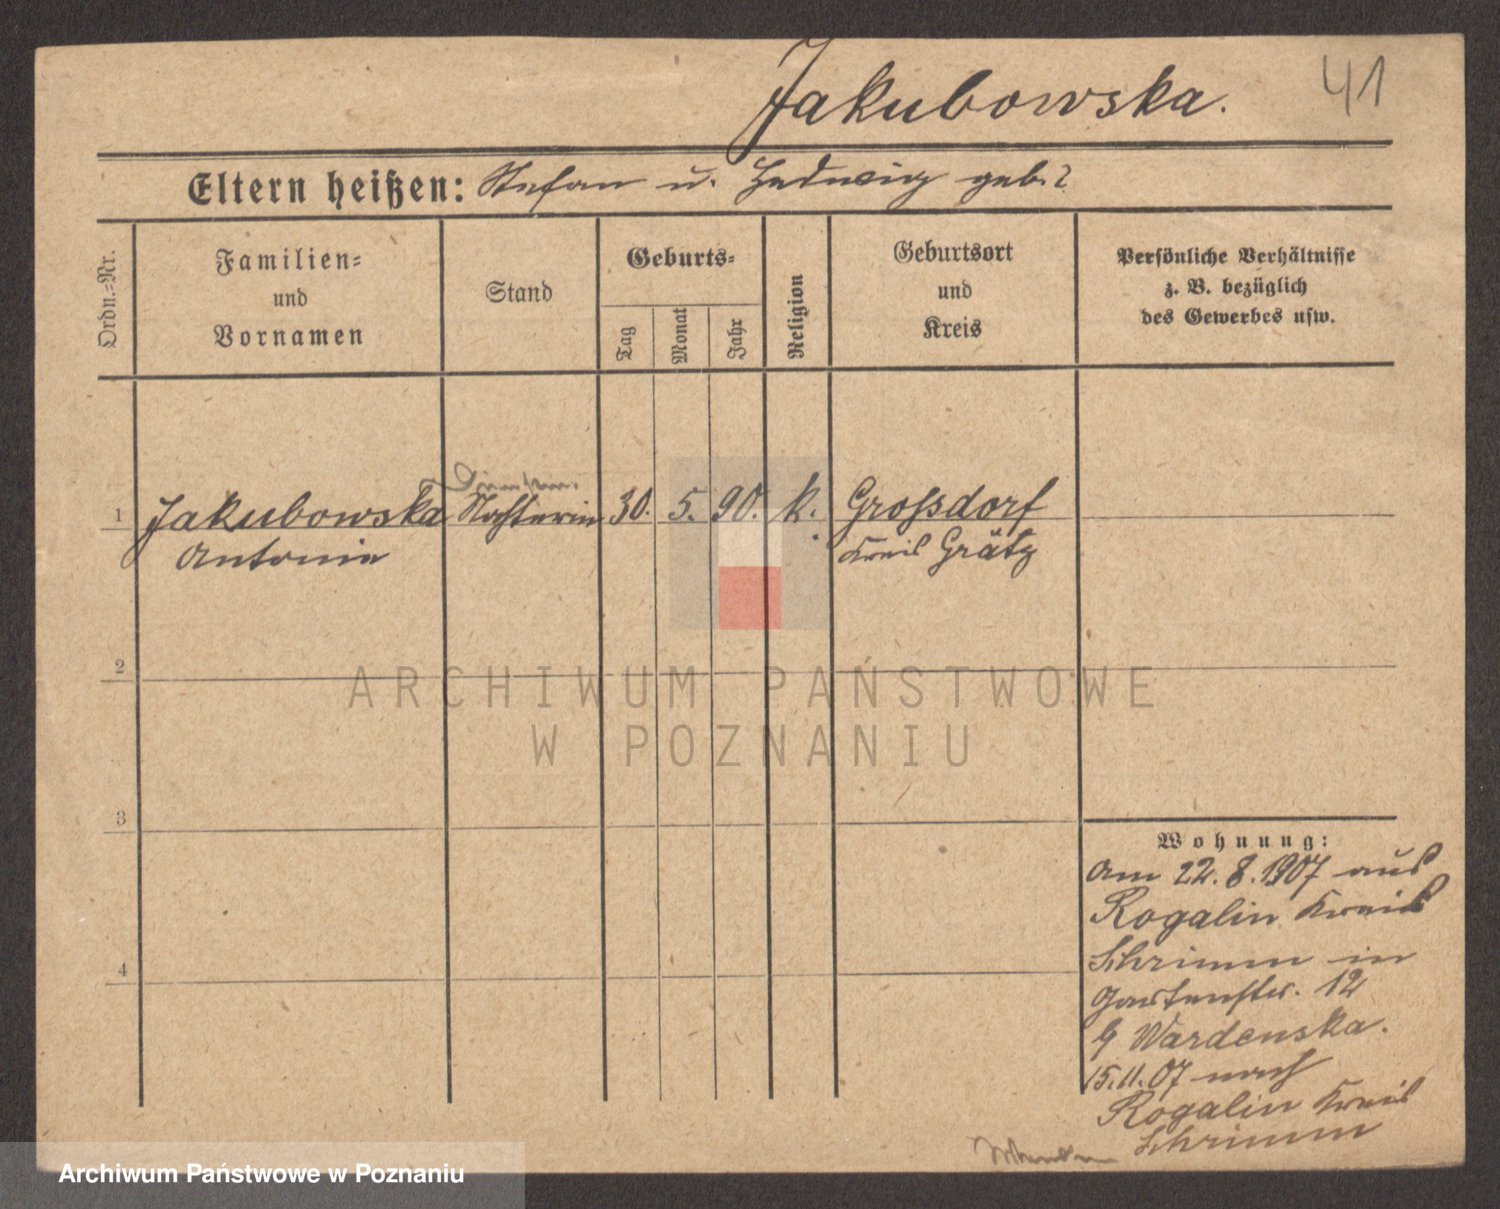 Jakubowska.
41
Eltern heißen: Stefan u. Hedwig geb. ?
Ordn.-Nr.
Familien-
und
Vornamen
Stand
Geburts-
Tag
Monat
Jahr
Religion
Geburtsort
und
Kreis
Persönliche Verhältnisse
z. B. bezüglich
des Gewerbes usw.
1
Jakubowska
30. 5. 90. k.
Grossdorf
Antonie
Kreis Grätz
2
ARCHIWUM PAŃSTWOWE
W POZNANIU
3
Wohnung:
Am 22. 8. 1907 aus
Rogalin Kreis
Schrimm in
Gartenstr. 12
b/ Wardenska.
15.11.07 nach
Rogalin Kreis
Schrimm
4
Archiwum Państwowe w Poznaniu